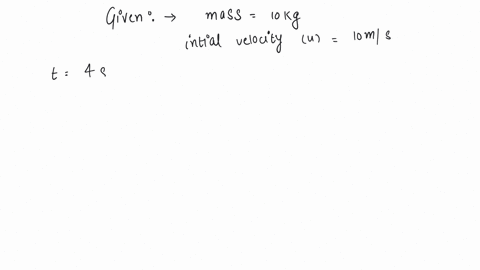 Given :→ mass = 10 kg
intial velocity (u) = 10 m/s
t = 4 s